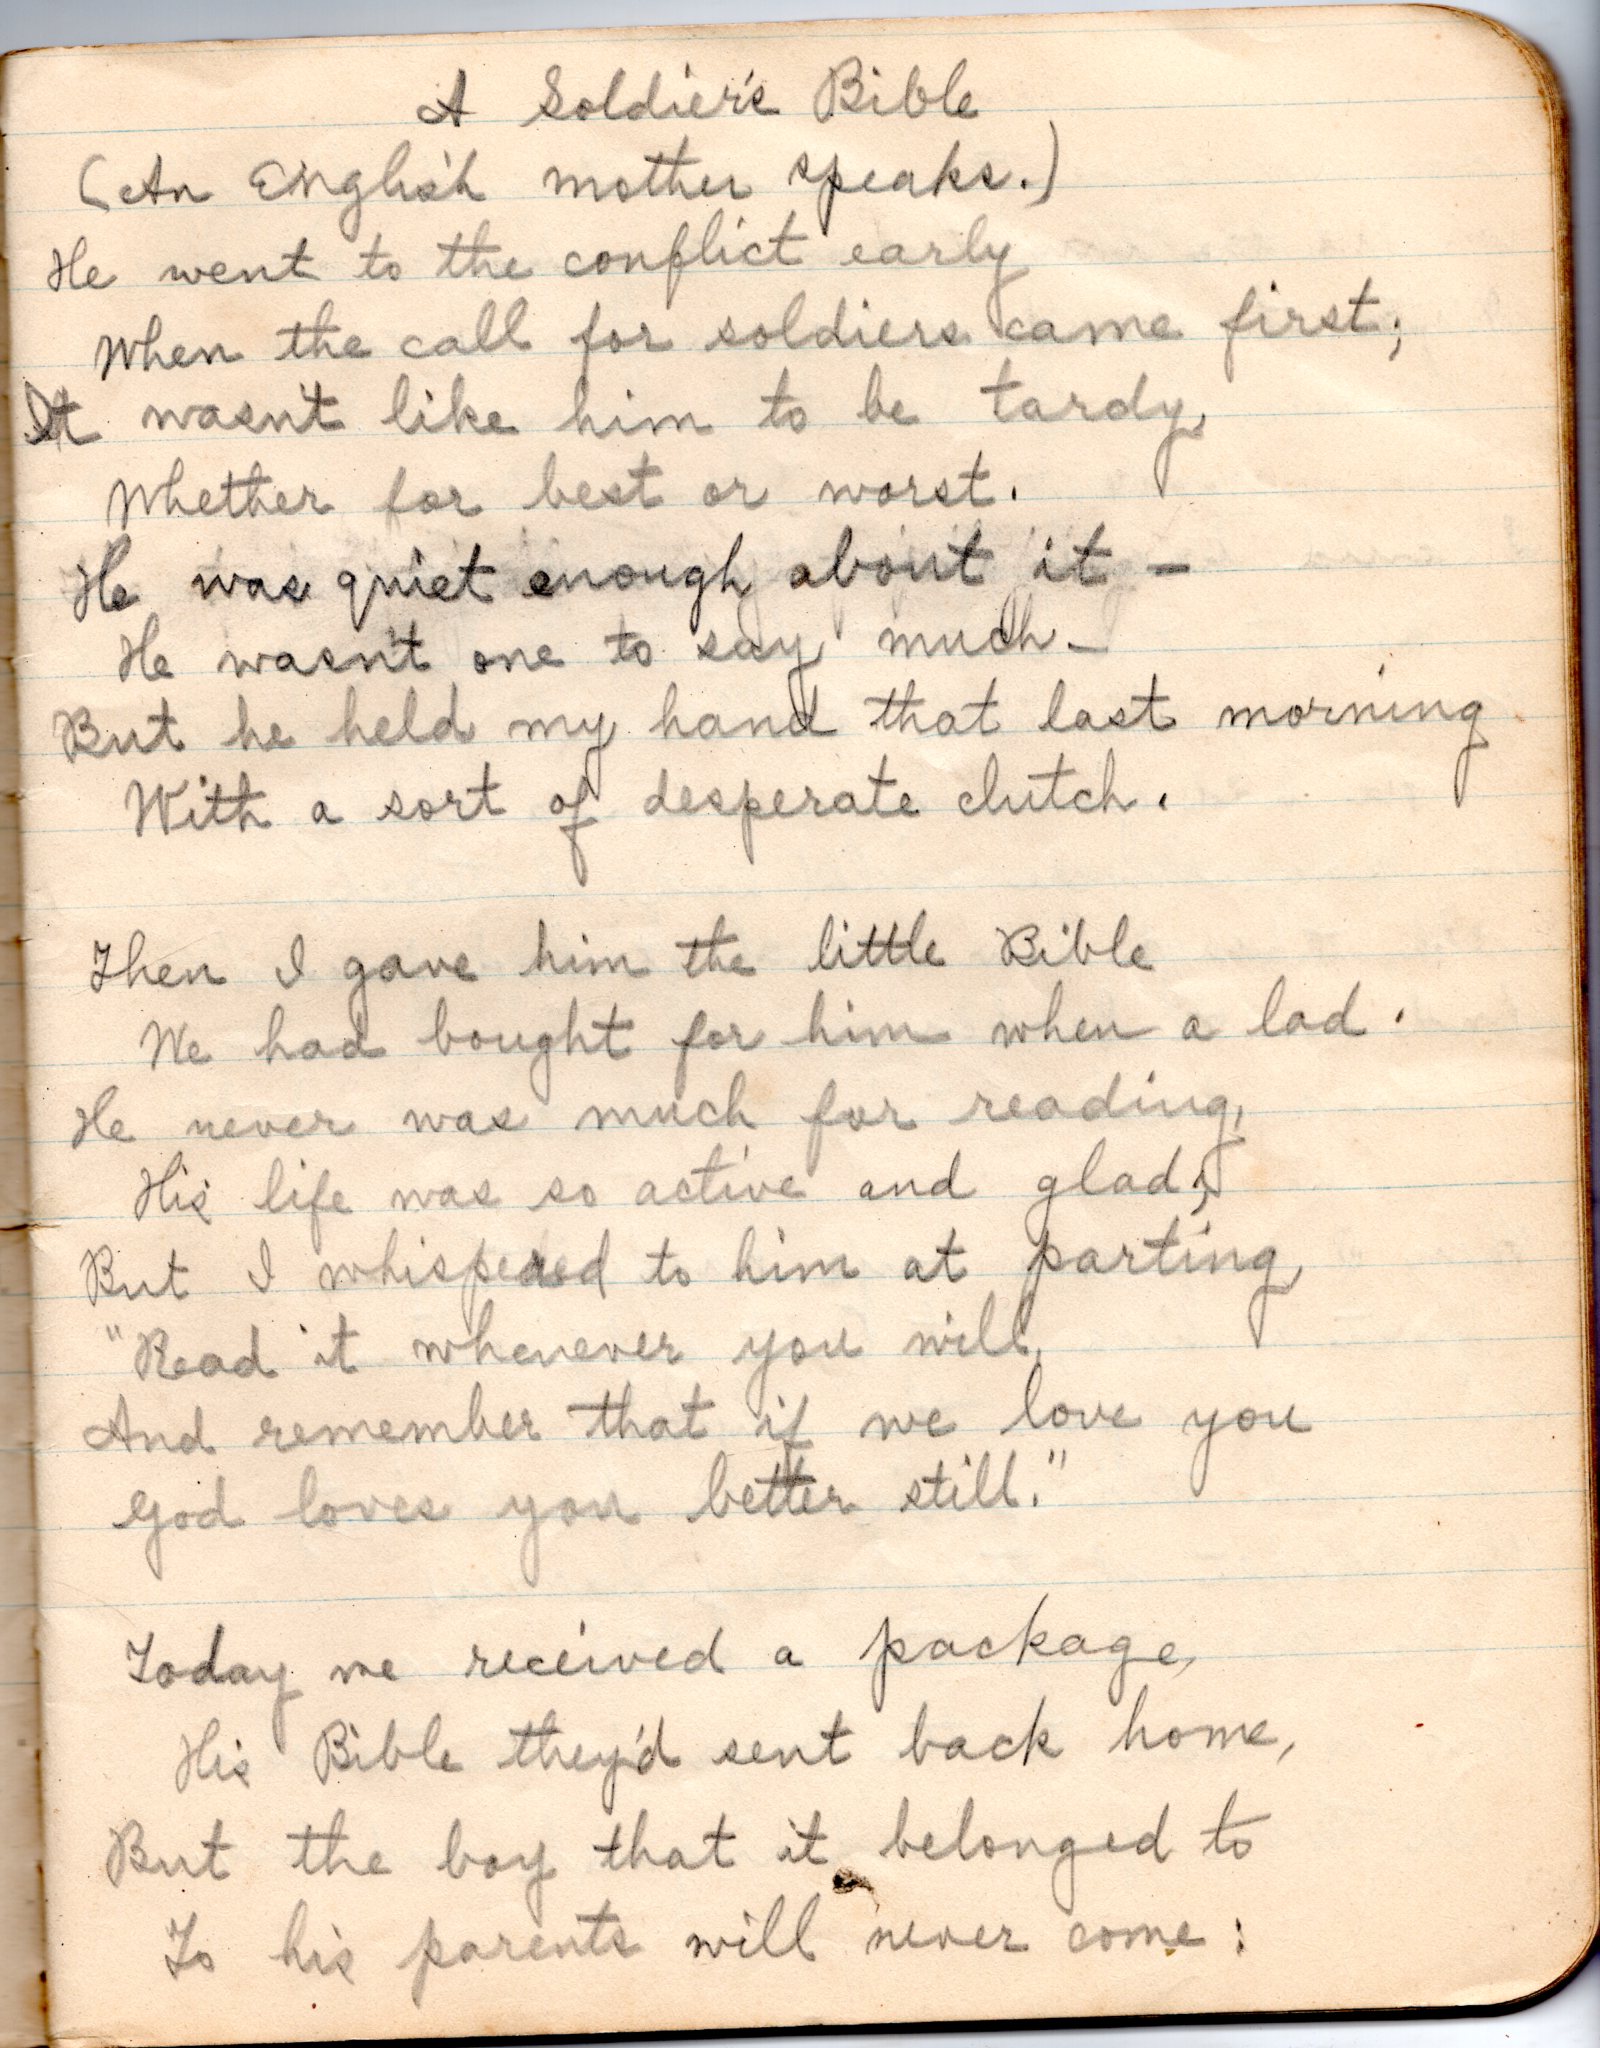 A Soldier's Bible
(An English mother speaks.)
He went to the conflict early
When the call for soldiers came first;
It wasn't like him to be tardy,
Whether for best or worst.
He was quiet enough about it –
He wasn't one to say much –
But he held my hand that last morning
With a sort of desperate clutch.
Then I gave him the little Bible
We had bought for him when a lad.
He never was much for reading,
His life was so active and glad;
But I whispered to him at parting,
"Read it whenever you will,
And remember that if we love you
God loves you better still."
Today we received a package,
His Bible they'd sent back home,
But the boy that it belonged to
To his parents will never come: